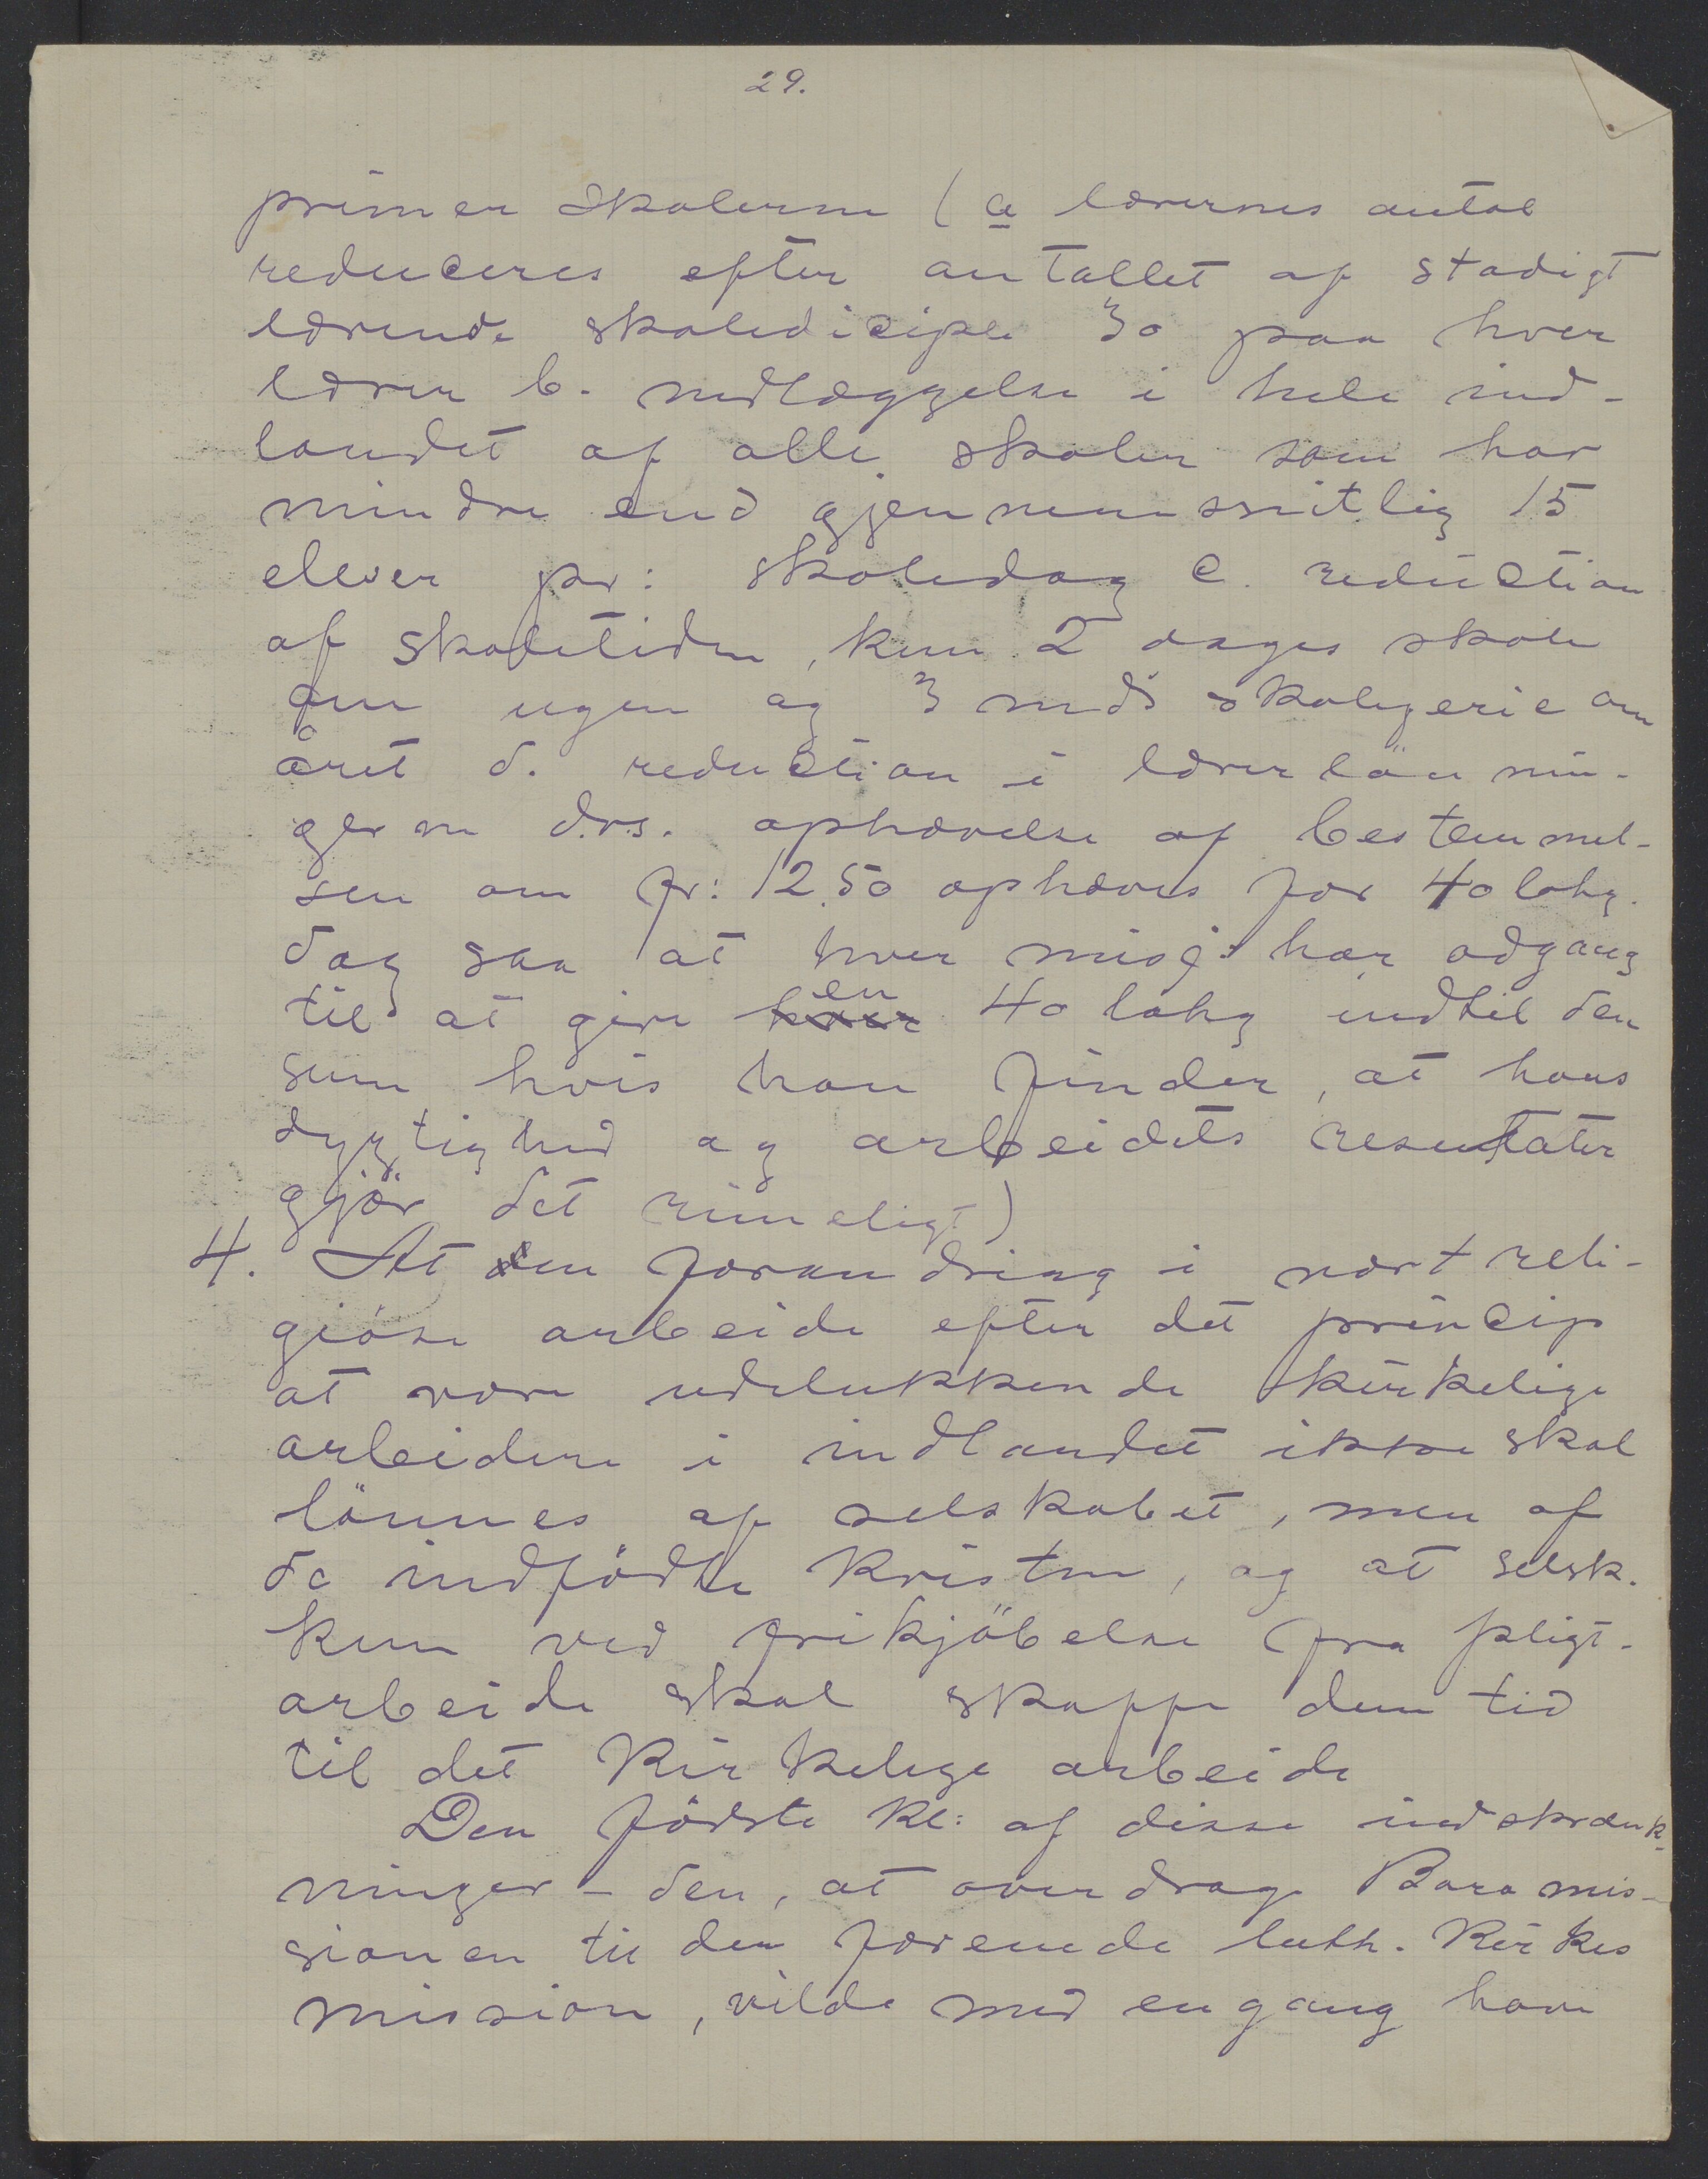 29.
primær skolerne (a lærernes antal
reduceres efter antallet af stadigt
lærende skoledicipле 30 paa hver
lærer b. nedlæggelse i hele ind-
landet af alle skoler som har
mindre end gjennemsnitlig 15
elever pr: skoledag c. reduction
af skoletiden, kun 2 dages skole
om ugen og 3 mds skoleferie om
året d. reduction i lærerlönnin-
gerne d.v.s. ophævelse af bestemmel-
sen om fr: 12.50 ophæves for 40 lohg.
dog saa at hver misj: har adgang
til at give hver en 40 lohg indtil den
sum hvis han finder, at hans
dygtighed og arbeidets resultater
gjör det rimeligt)
4. At en forandring i vort reli-
giöse arbeide efter det princip
at vore udelukkende kirkelige
arbeidere i indlandet ikke skal
lönnes af selskabet, men af
de indfödte kristne, og at selsk.
kun ved frikjöbelse fra pligt-
arbeide skal skaffe dem tid
til det kirkelige arbeide
Den förste kl: af disse indskrænk-
ninger - den, at overdrage Bara mis-
sionen til den forenede luth. kirkes
mission, vilde med engang have